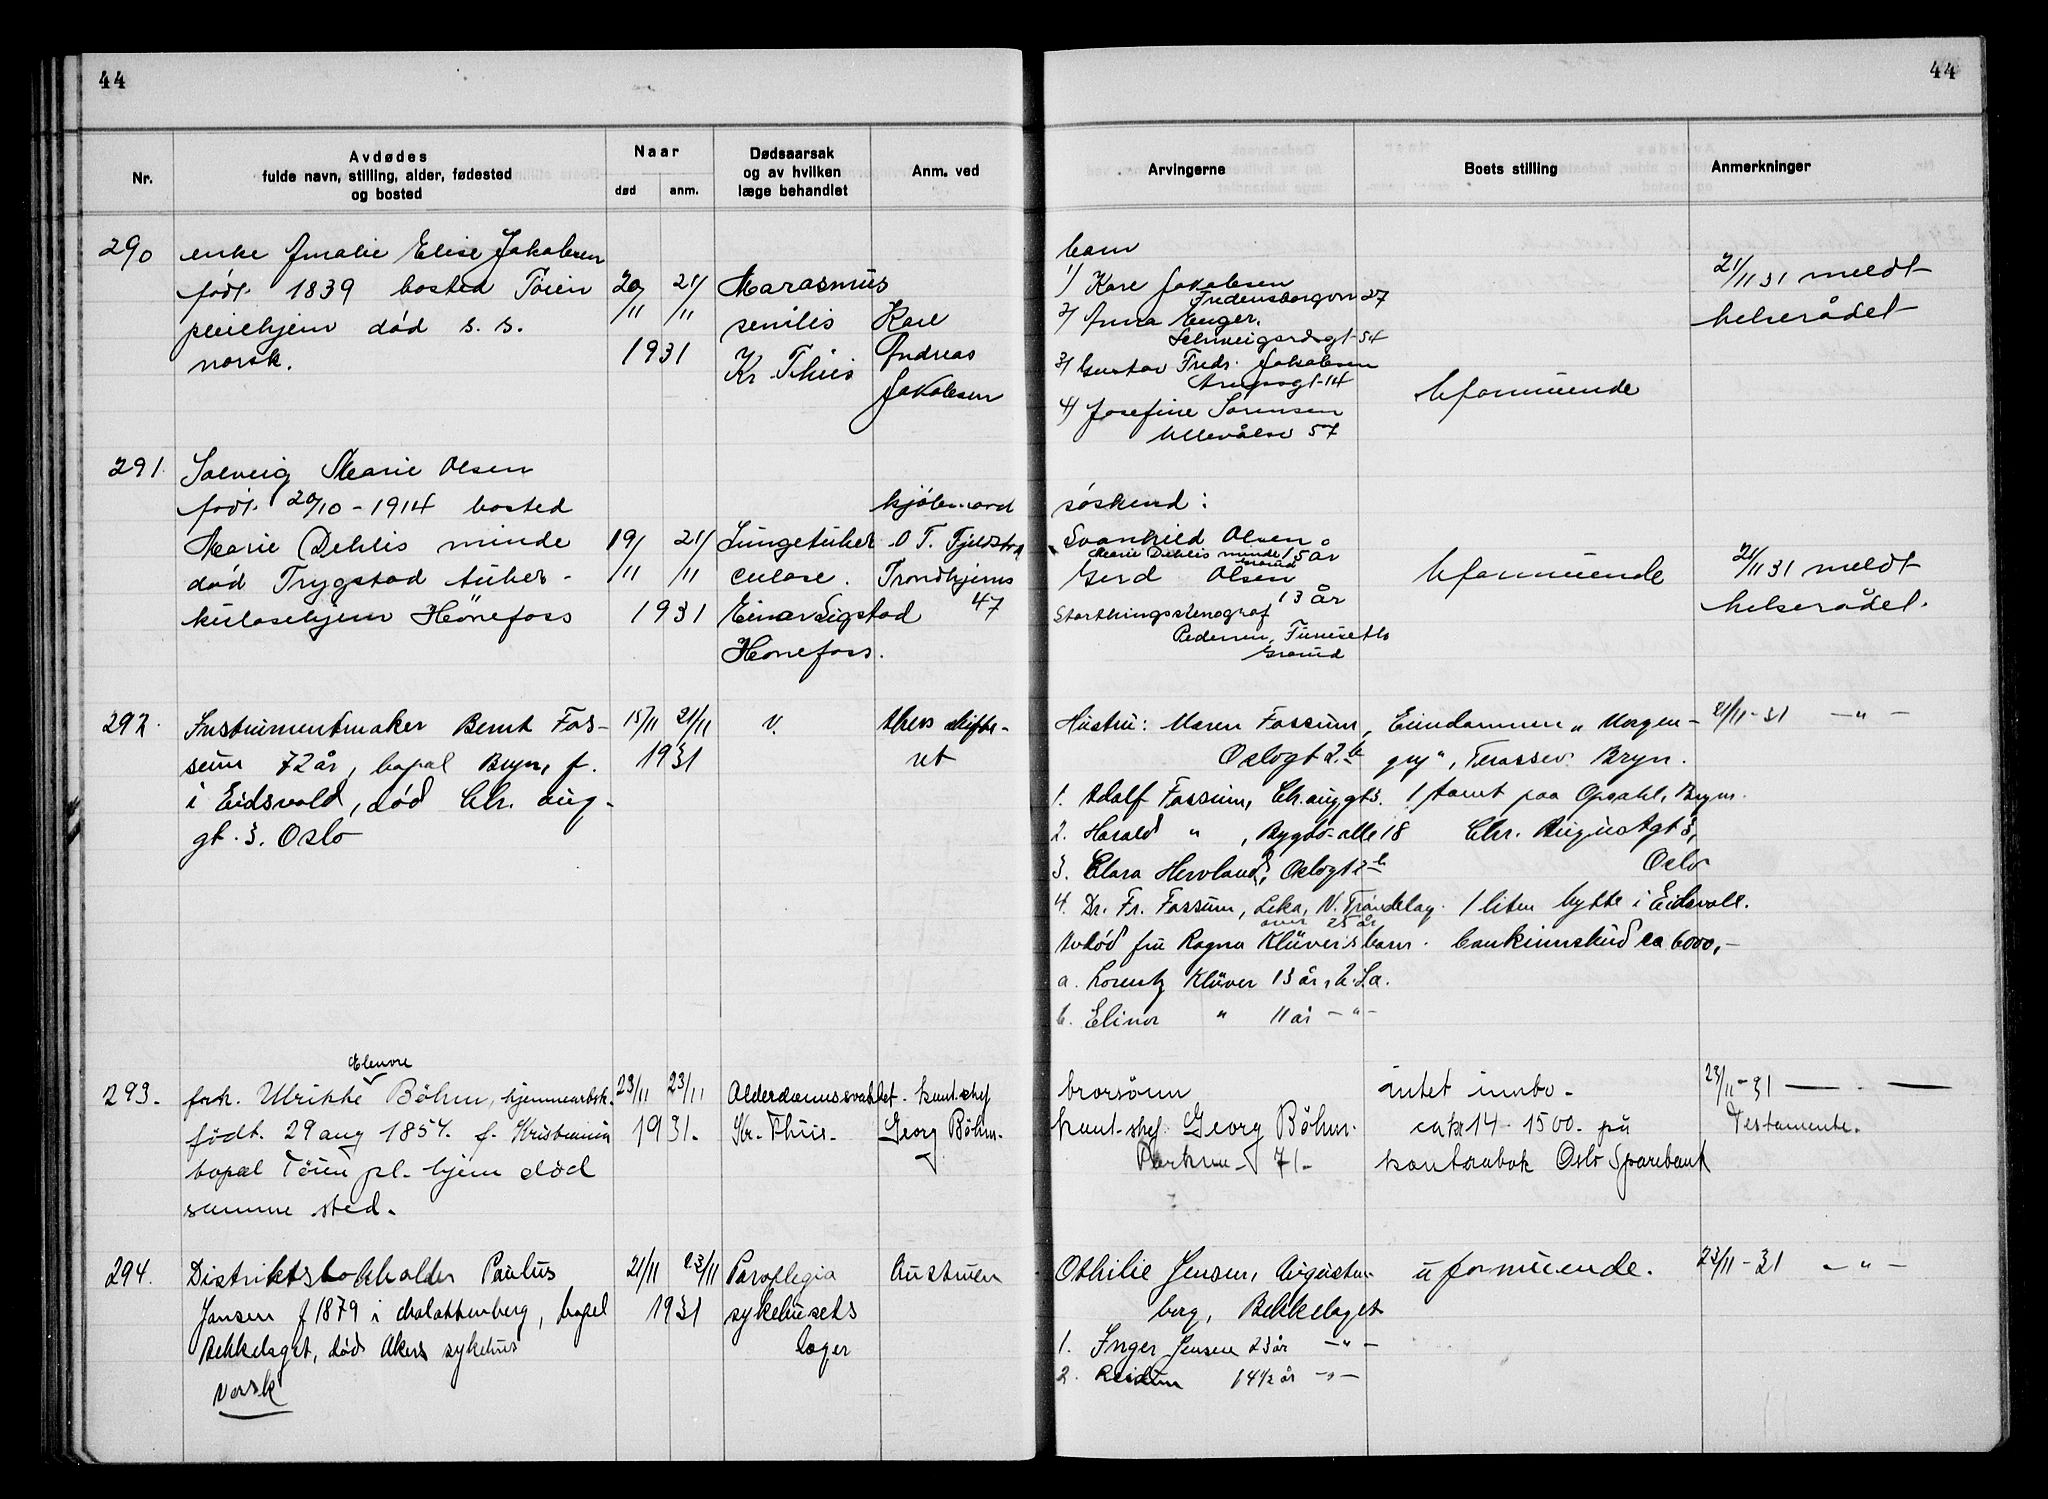 44
44
Nr.
Avdødes
fulde navn, stilling, alder, fødested
og bosted
Naar
død
anm.
Dødsaarsak
og av hvilken
læge behandlet
Anm. ved
Arvingerne
Boets stilling
Anmerkninger
290
enke Amalie Elise Jakobsen
født 1839 bosted Töien
pleiehjem död s. s.
norsk.
20/11 21/11
1931
Marasmus
senilis
Kr Thiis
Kare
Andreas
Jakobsen
barn
1/ Kare Jakobsen
Fredensborgvn 27
2/ Anna Enger.
Schweigaardsgt 54
3/ Gustav Fredr. Jakobsen
gt 14
4/ Josefine Sörensen
Ullevålsv 57
Uformuende
21/11 31 meldt
helserådet
291.
Solveig Marie Olsen
født 20/10-1914 bosted
Marie Dehlis minde
död Trygstad tuber-
kulosehjem Hönefoss
19/11 21/11
1931
Lungetuber
culose.
Einar Sigstad
Hönefoss.
kjöbmand
O T. Fjeldstad
Trondhjems
47
söskend:
Svanhild Olsen
Marie Dehlis minde 15 år
Grorud
Gerd Olsen
13 år
Storthingsstenograf
Pedersen, Furuseth
Grorud
Uformuende
21/11 31 meldt
helserådet.
292.
Instrumentmaker Bernt Fos-
sum 72 år, bopæl Bryn, f.
i Eidsvold, död Chr. aug.
gt. 3. Oslo
15/11 21/11
1931
V.
Akers skifte-
ret
Hustru: Maren Fossum,
Oslogt 2b
1. Adolf Fossum, Chr. aug gt 3.
2. Harald " , Bygdö alle 18
3. Clara Hervland, Oslogt 2b
4. Dr. Fr. Fossum, Leka, N. Tröndelag.
over 25 år
Avdöd fru Ragna Klüvers barn.
a. Lorentz Klüver 13 år,
b. Elinor " 11 år - " -
Eiendommen " Morgen-
gry", Terassev. Bryn.
1 tomt paa Opsahl, Bryn.
Chr. Augustgt 3,
Oslo
1 liten hytte i Eidsvoll.
bankinnskud ca 6000,-
21/11-31 - " -
293.
Elenore
frk. Ulrikke Böhm, hjemmearb.
födt. 29 aug 1854. f. Kristiania
bopæl Töien pl. hjem död
samme sted.
23/11 23/11
1931.
Alderdomssvakhet.
Kr. Thiis.
kont. chef
Georg Böhm.
brorsönn
kont. chef. Georg Böhm.
Parkvn. 71.
intet innbo.
ca kr 14-1500. på
kontrabok Oslo Sparebank
23/11-31 — " —
Testamente.
294.
Distriktsbokholder Paulus
Jansen f 1879 i , bopel
Bekkelaget, död Akers sykehus
norsk
21/11 23/11
1931
Paraplegia
sykehusets
læger
Enkens
Othilie Jensen, Augusten-
borg, Bekkelaget
1. Inger Jensen 23 år - " -
2. Reidun 14 1/2 år - " -
uformuende.
23/11-31 - " -